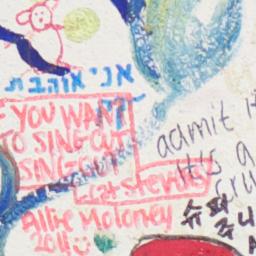 אני אוהבת
F YOU WANT
TO SING OUT
SING OUT
cat stevens
Allie Moloney
2011
admit it
It's a
cru
슈퍼
주니